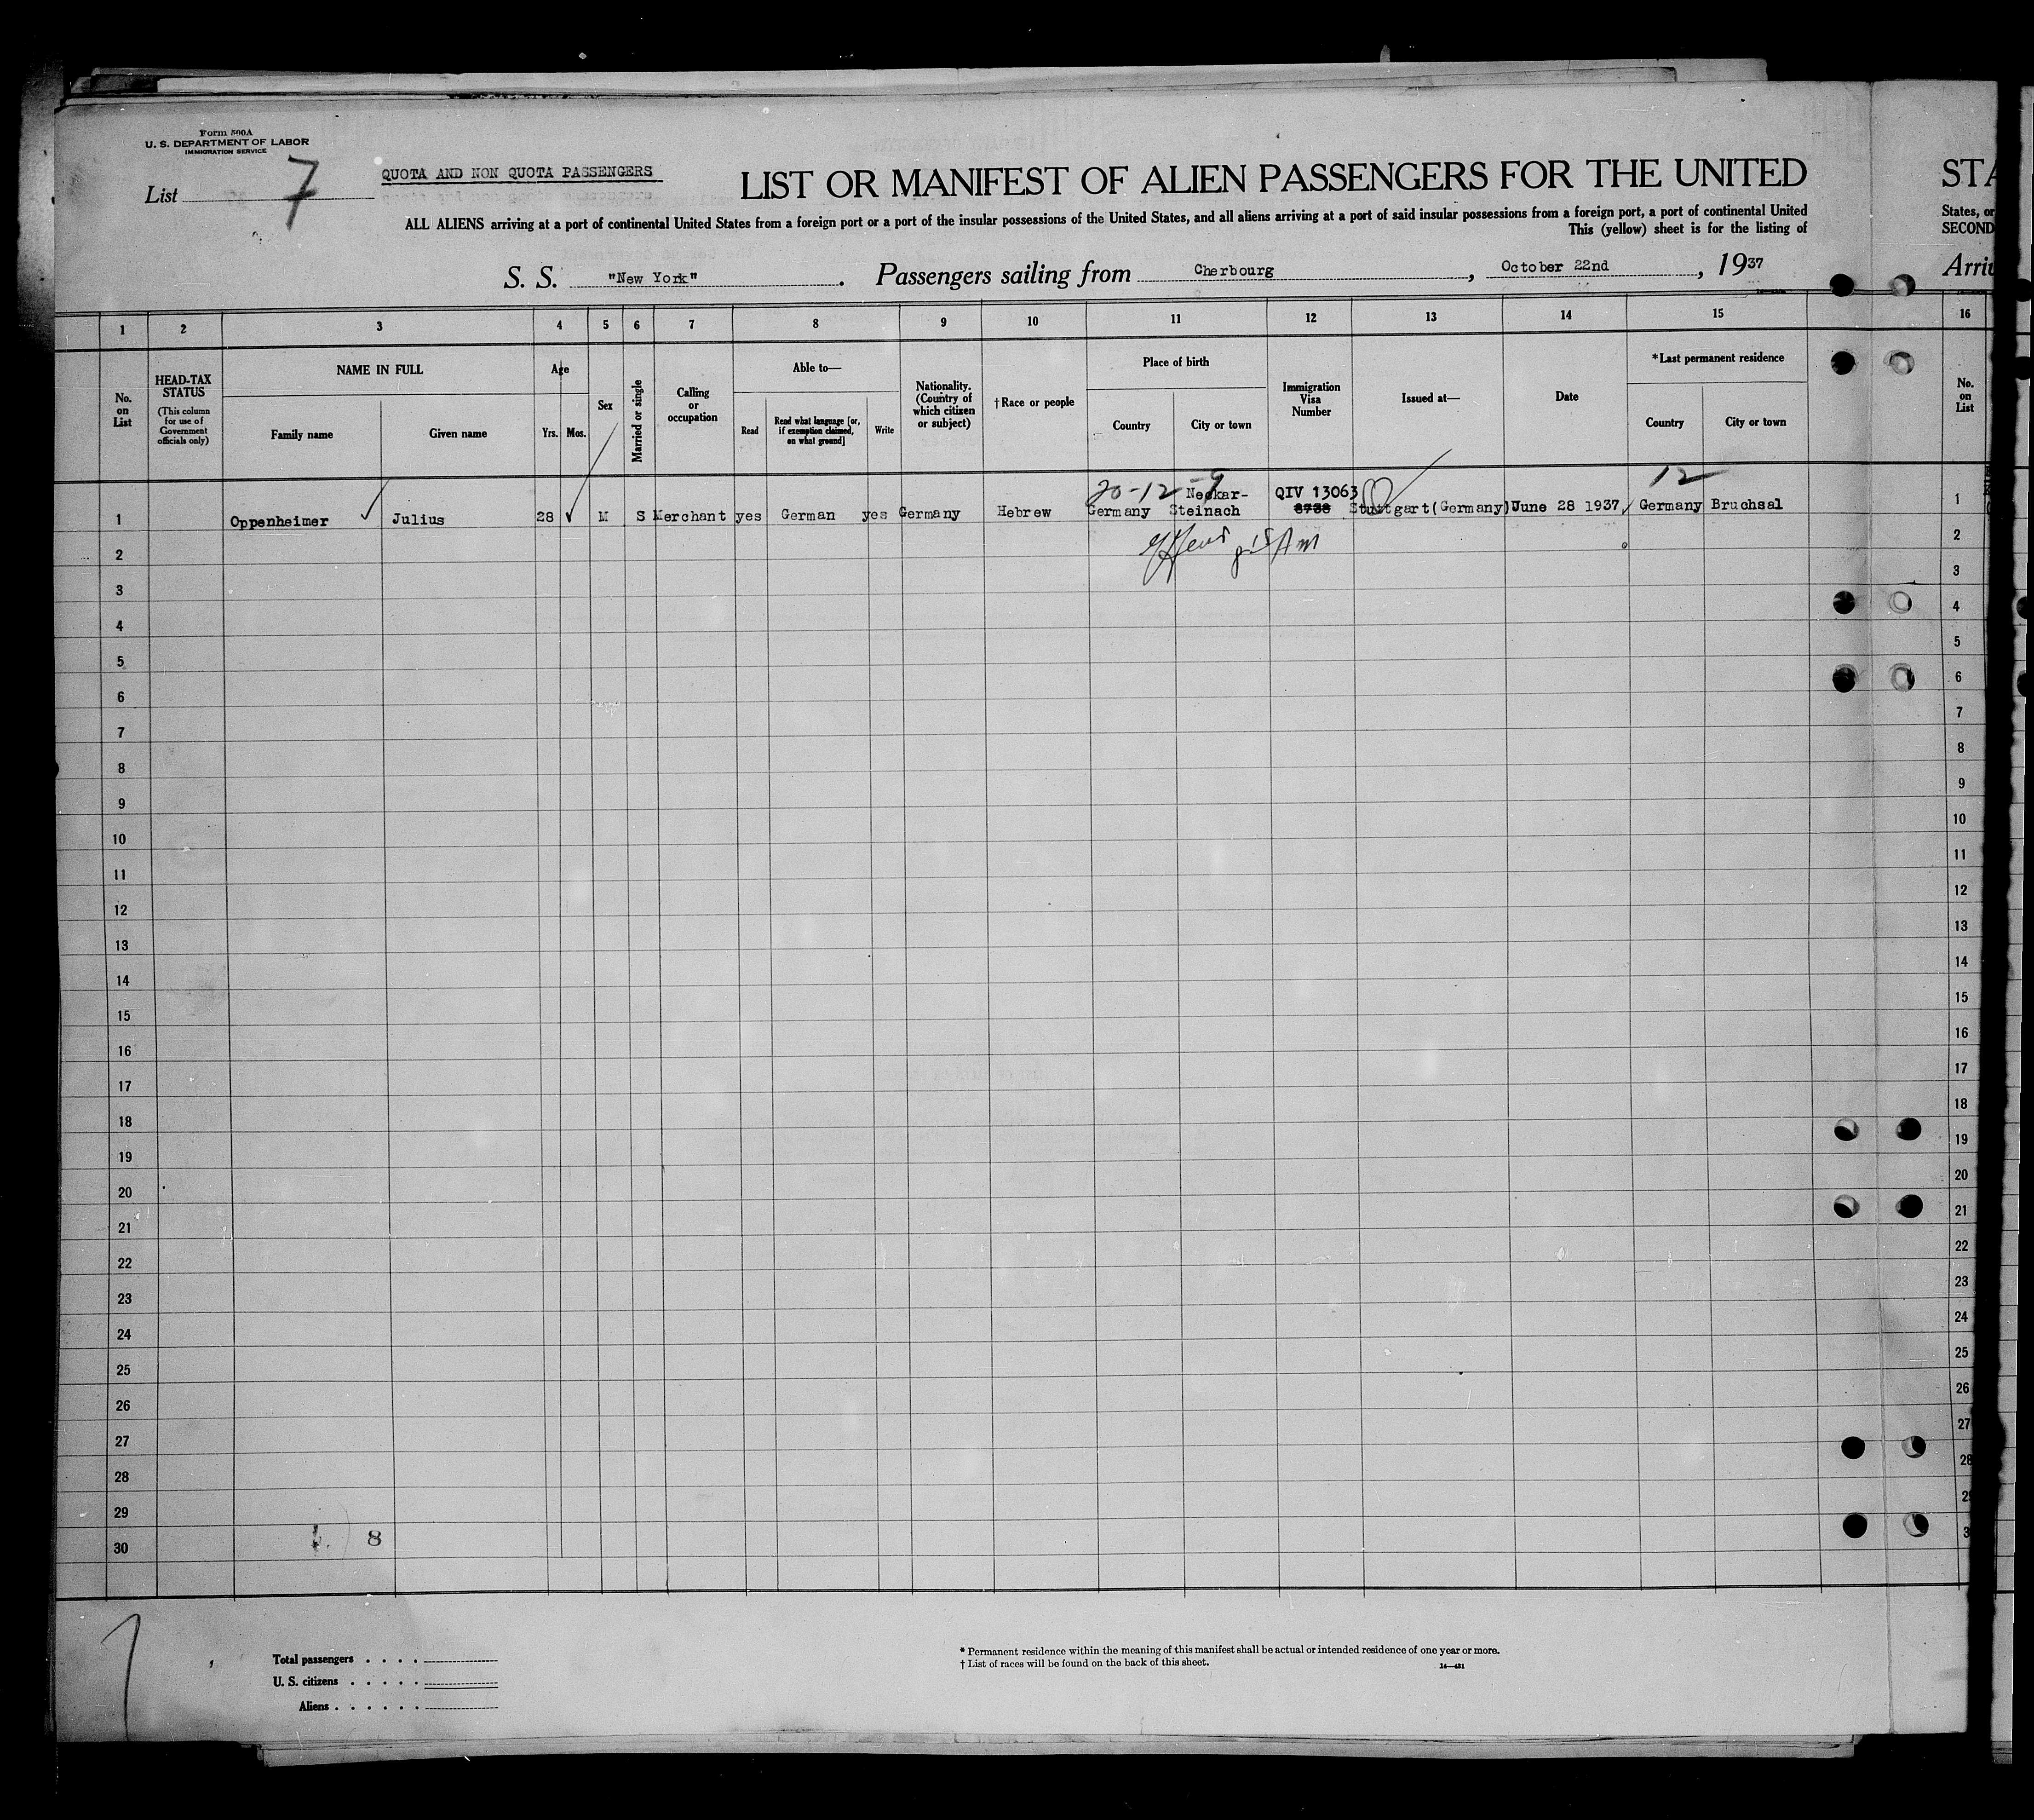 Form 500A
U. S. DEPARTMENT OF LABOR
IMMIGRATION SERVICE
List 7
QUOTA AND NON QUOTA PASSENGERS
LIST OR MANIFEST OF ALIEN PASSENGERS FOR THE UNITED
STA
ALL ALIENS arriving at a port of continental United States from a foreign port or a port of the insular possessions of the United States, and all aliens arriving at a port of said insular possessions from a foreign port, a port of continental United
States, or
This (yellow) sheet is for the listing of
SECOND
S. S. "New York". Passengers sailing from Cherbourg, October 22nd, 1937
Arri
1 2 3 4 5 6 7 8 9 10 11 12 13 14 15 16
No. on List
HEAD-TAX STATUS
(This column for use of Government officials only)
NAME IN FULL
Family name
Given name
Age
Yrs.
Mos.
Sex
Married or single
Calling or occupation
Able to—
Read
Read what language [or, if exemption claimed, on what ground]
Write
Nationality. (Country of which citizen or subject)
†Race or people
Place of birth
Country
City or town
Immigration Visa Number
Issued at—
Date
*Last permanent residence
Country
City or town
No. on List
20-12-9
12
1 Oppenheimer Julius 28 M S Merchant yes German yes Germany Hebrew Germany Neckar-Steinach QIV 13063 8738 Stuttgart(Germany) June 28 1937 Germany Bruchsal 1
2 2
3 3
4 4
5 5
6 6
7 7
8 8
9 9
10 10
11 11
12 12
13 13
14 14
15 15
16 16
17 17
18 18
19 19
20 20
21 21
22 22
23 23
24 24
25 25
26 26
27 27
28 28
29
8
30
Total passengers . . . .
U. S. citizens . . . . .
Aliens . . . . . .
* Permanent residence within the meaning of this manifest shall be actual or intended residence of one year or more.
† List of races will be found on the back of this sheet.
14—421